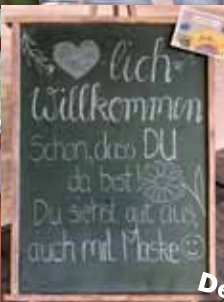 ♥lich
Willkommen
Schön, dass DU
da bist!
Du siehst gut aus,
auch mit Maske ☺
De